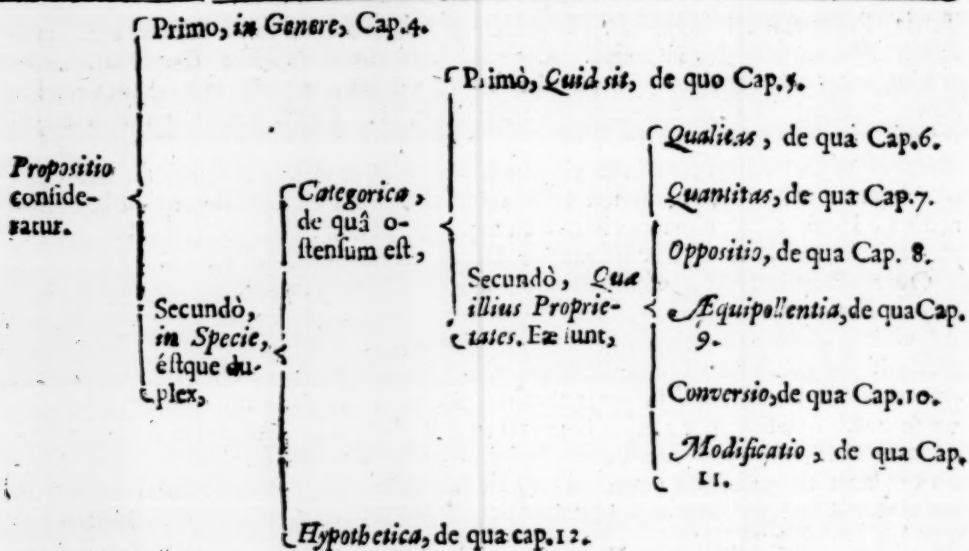 Primo, in Genere, Cap.4.
Propositio
conside-
ratur.
Secundò,
in Specie,
éstque du-
plex,
Categorica,
de quâ o-
stensum est,
Primò, Quid sit, de quo Cap.5.
Secundò, Quæ
illius Proprie-
tates. Eæ sunt,
Qualitas, de qua Cap.6.
Quantitas, de qua Cap.7.
Oppositio, de qua Cap. 8.
Æquipollentia, de qua Cap.
9.
Conversio, de qua Cap.10.
Modificatio, de qua Cap.
11.
Hypothetica, de qua cap.12.